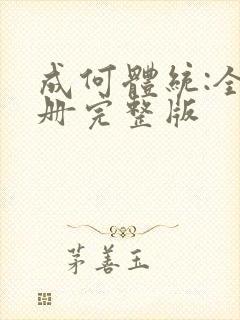 成何體統:全
册完整版
茅善玉